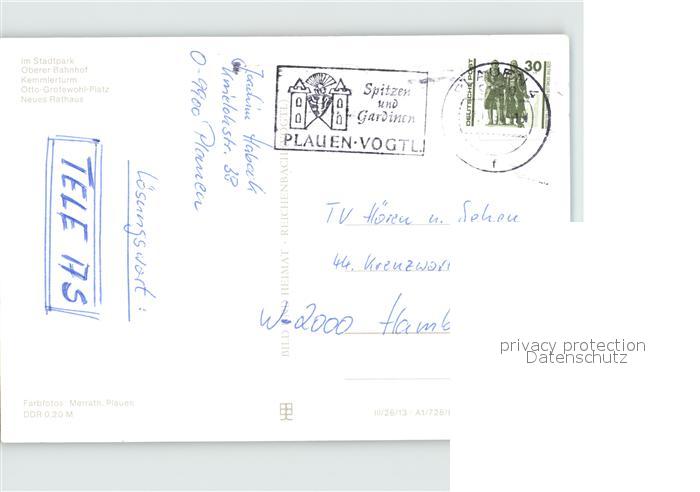 im Stadtpark
Oberer Bahnhof
Kemmlerturm
Otto-Grotewohl-Platz
Neues Rathaus
Joachim
38
O-9900 Plauen
Lösungswort:
TELE AS
Spitzen
und
Gardinen
PLAUEN·VOGTL.
DEUTSCHE POST
30
f
TV Hören u. Sehen
44. Kreuzwor
W-2000 Hamb
BILD UND HEIMAT · REICHENBACH
privacy protection
Datenschutz
Farbfotos: Merrath, Plauen
DDR 0,20 M
III/26/13 · A1/728/